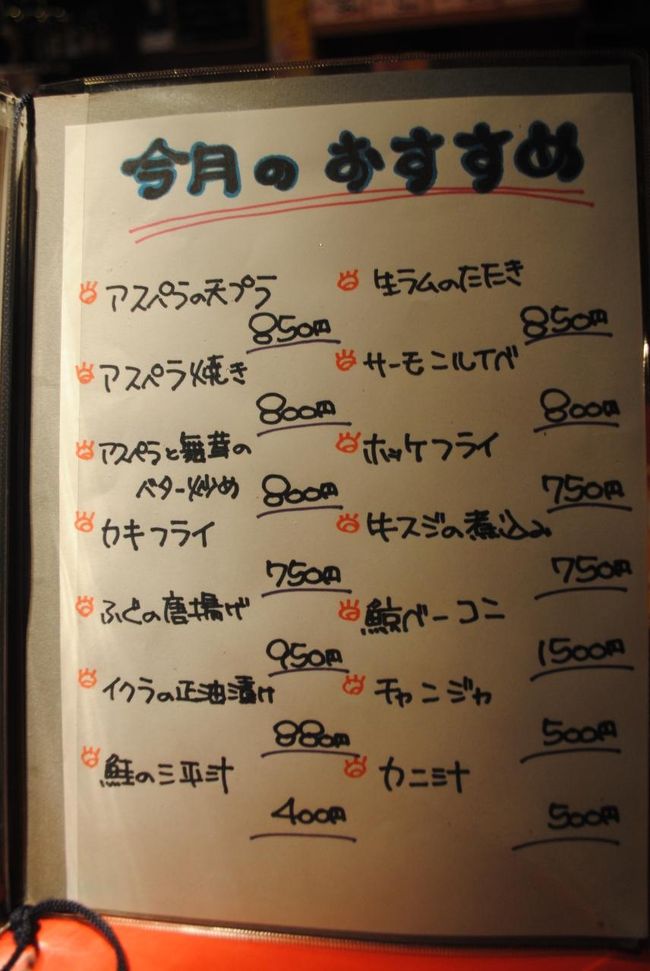 今月のおすすめ
アスパラの天プラ
850円
アスパラ焼き
800円
アスパラと舞茸の
バター炒め 800円
カキフライ
750円
ふぐの唐揚げ
950円
イクラの正油漬け
880円
鮭の三平汁
400円
生ラムのたたき
850円
サーモンルイベ
800円
ホッケフライ
750円
牛スジの煮込み
750円
鯨ベーコン
1500円
チャンジャ
500円
カニ汁
500円